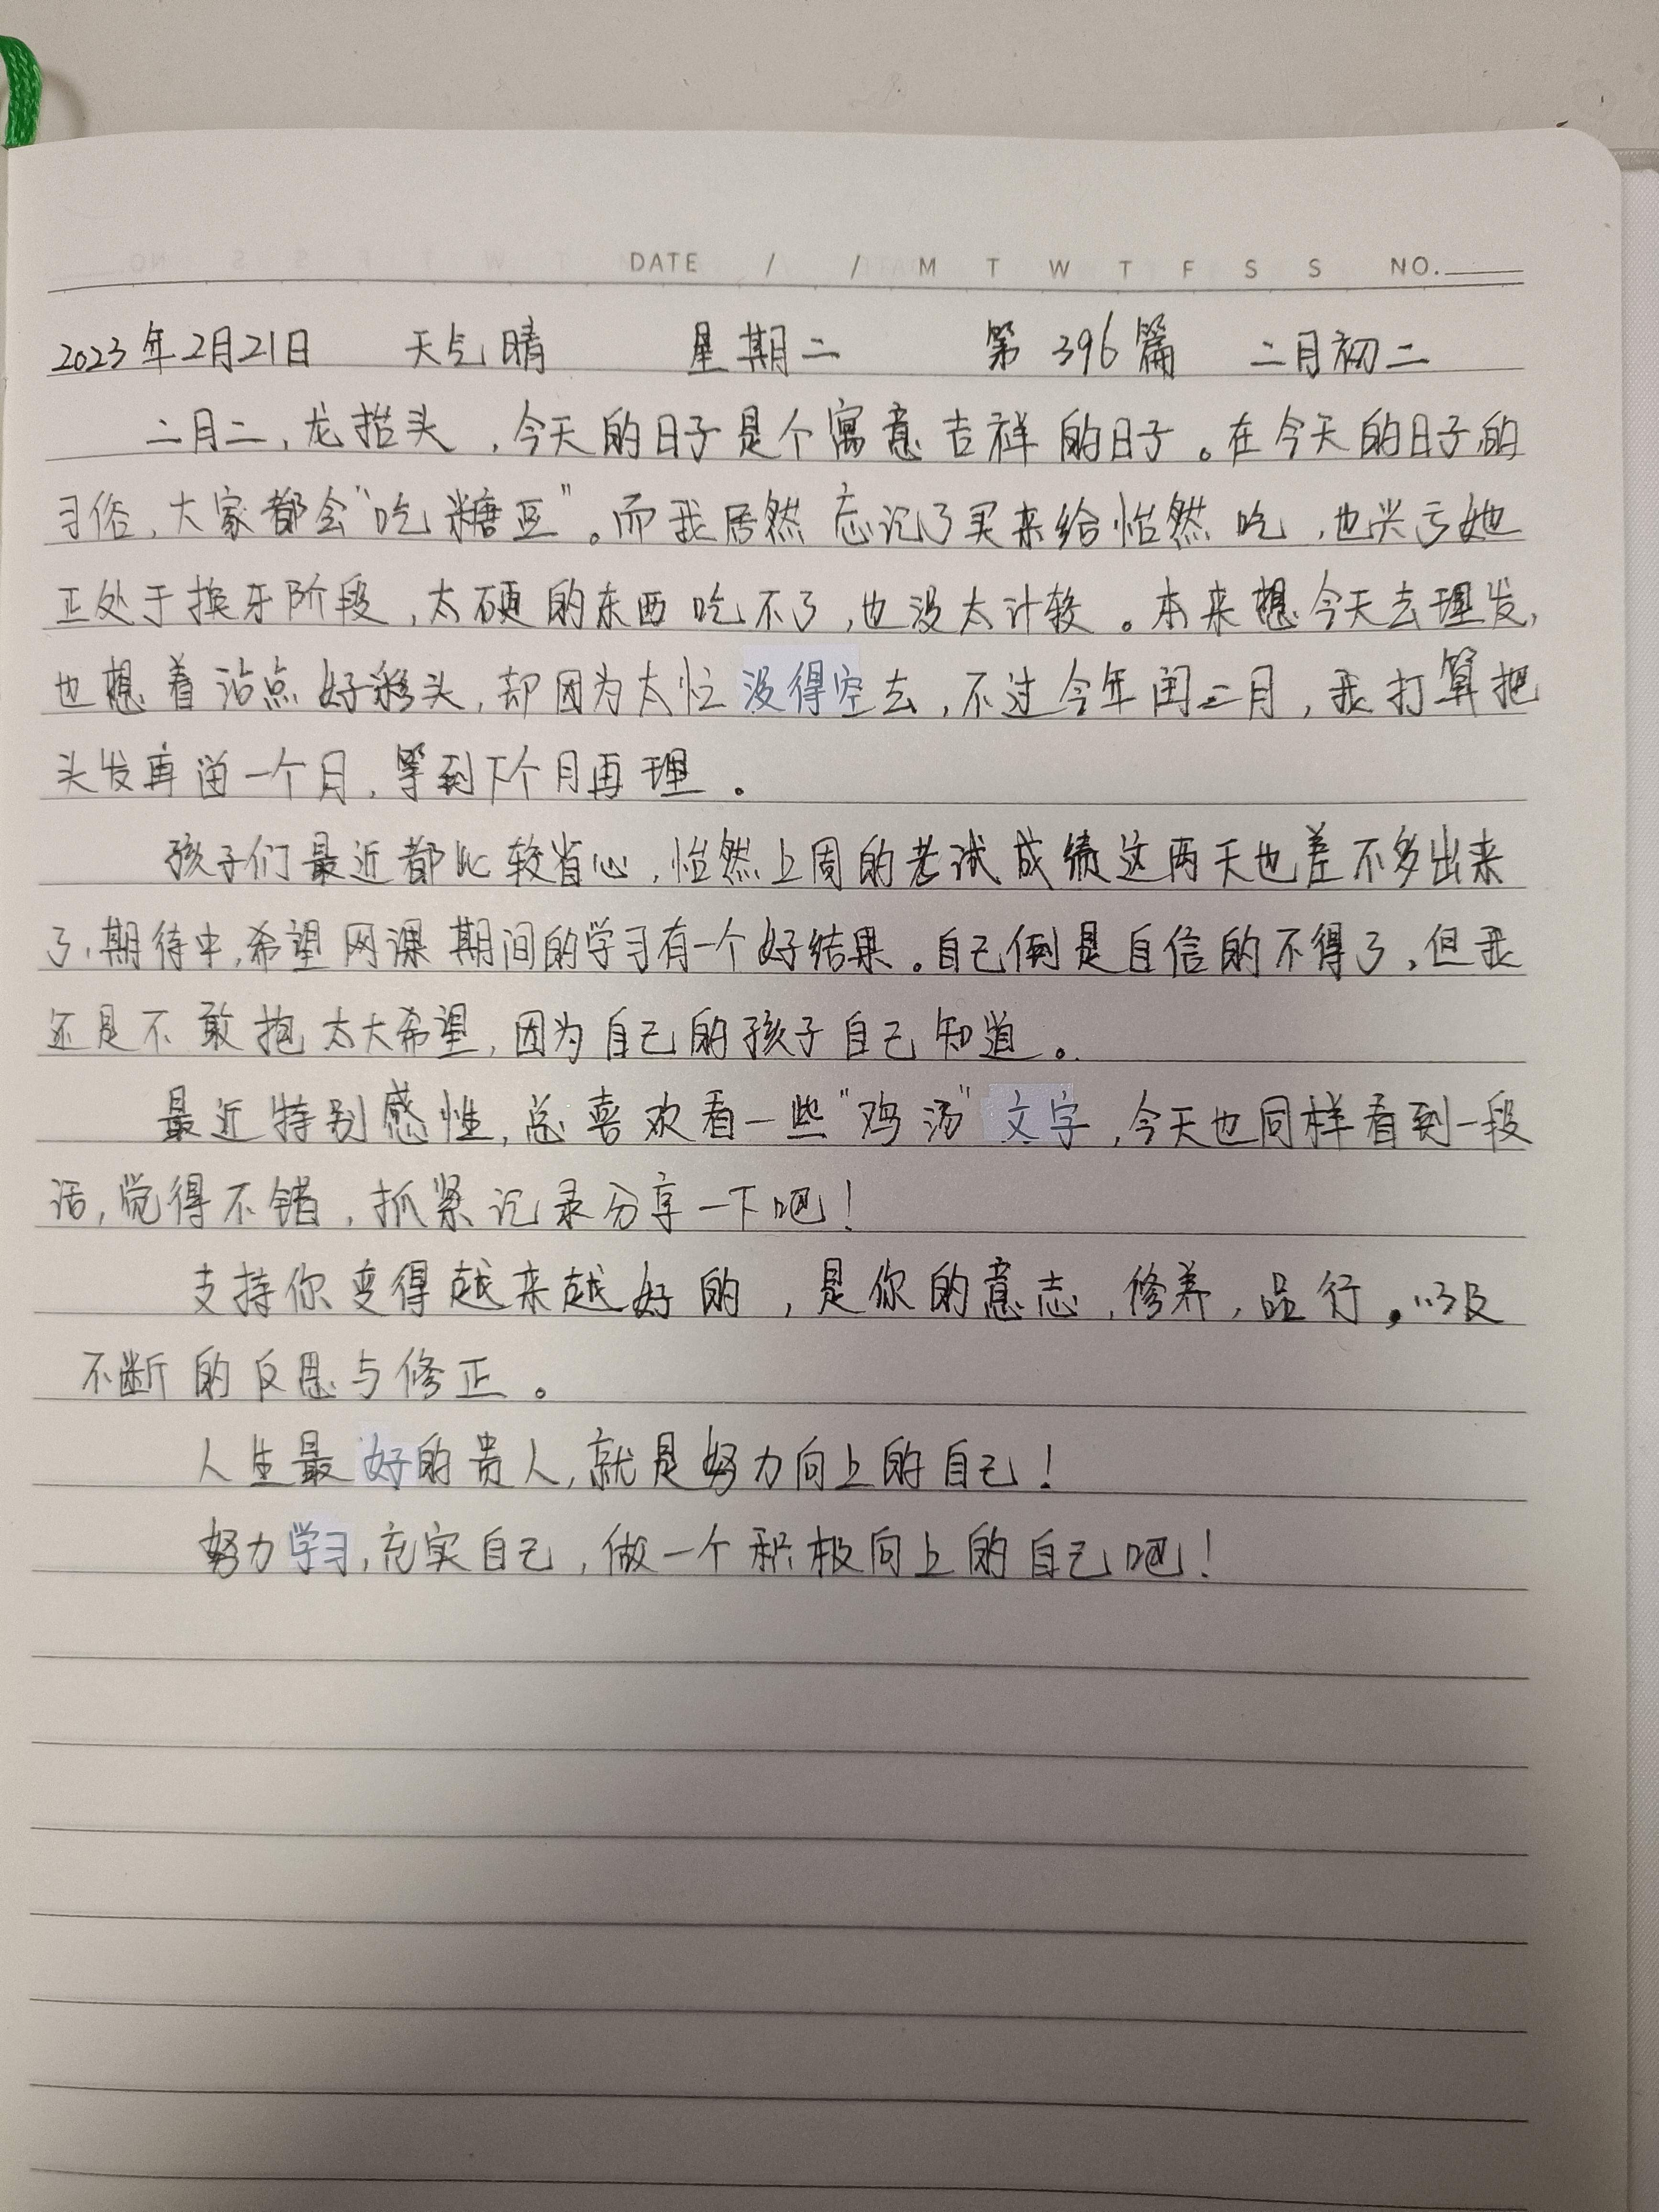 DATE / / M T W T F S S NO.
2023年2月21日 天气晴 星期二 第396篇 二月初二
二月二,龙抬头,今天的日子是个寓意吉祥的日子。在今天的日子的
习俗,大家都会“吃糖豆”。而我居然忘记了买来给怡然吃,也兴亏她
正处于换牙阶段,太硬的东西吃不了,也没太计较。本来想今天去理发,
也想着沾点好彩头,却因为太忙没得空去,不过今年闰二月,我打算把
头发再留一个月,等到下个月再理。
孩子们最近都比较省心,怡然上周的考试成绩这两天也差不多出来
了,期待中,希望网课期间的学习有一个好结果。自己倒是自信的不得了,但我
还是不敢抱太大希望,因为自己的孩子自己知道。
最近特别感性,总喜欢看一些“鸡汤”文字,今天也同样看到一段
话,觉得不错,抓紧记录分享一下吧!
支持你变得越来越好的,是你的意志,修养,品行,以及
不断的反思与修正。
人生最好的贵人,就是努力向上的自己!
努力学习,充实自己,做一个积极向上的自己吧!